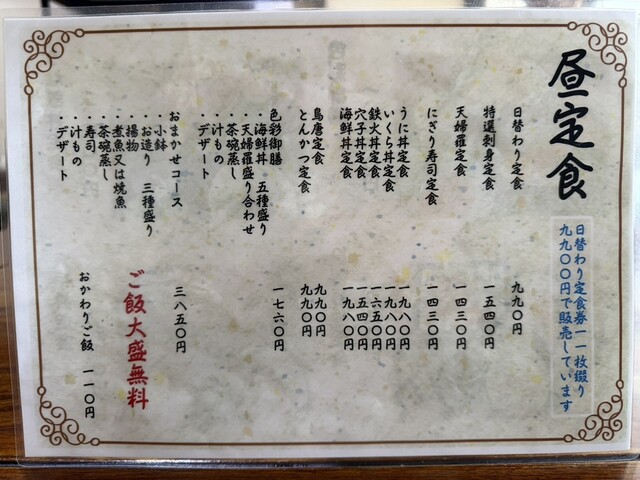 昼定食
日替わり定食券一一枚綴り
九九〇〇円で販売しています
日替わり定食 九九〇円
特選刺身定食 一五四〇円
天婦羅定食 一四三〇円
にぎり寿司定食 一四三〇円
うに丼定食 一九八〇円
いくら丼定食 一九八〇円
鉄火丼定食 一六五〇円
穴子丼定食 一五四〇円
海鮮丼定食 一九八〇円
鳥唐定食 九九〇円
とんかつ定食 九九〇円
色彩御膳 一七六〇円
・海鮮丼 五種盛り
・天婦羅盛り合わせ
・茶碗蒸し
・汁もの
・デザート
おまかせコース 三八五〇円
・小鉢
・お造り 三種盛り
・揚物
・煮魚又は焼魚
・茶碗蒸し
・寿司
・汁もの
・デザート
ご飯大盛無料
おかわりご飯 一一〇円